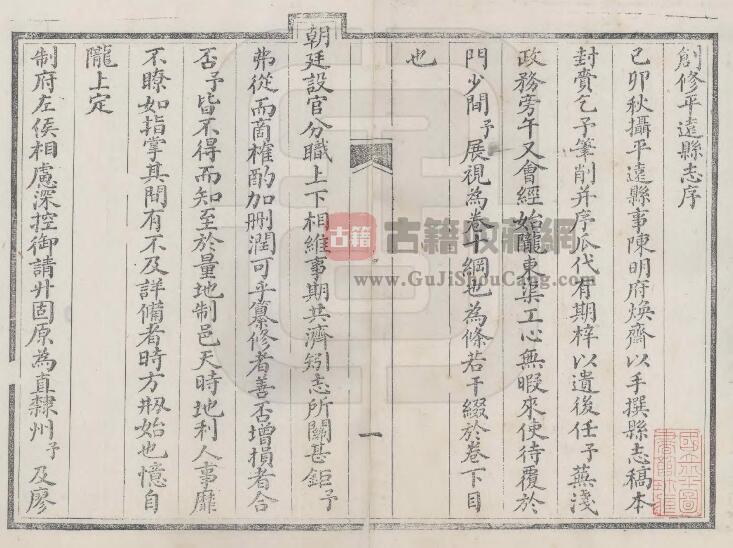 創修平遠縣志序
己卯秋攝平遠縣事陳明府煥齋以手撰縣志稿本
封賷乞予筆削并序瓜代有期梓以遺後任予蕪淺
政務旁午又會經始隴東渠工心無暇來使待覆於
門少間予展視為卷十綱也為條若干綴於卷下目
也
一
朝廷設官分職上下相維事期共濟矧志所關甚鉅予
弗從而商榷酌加刪潤可乎纂修者善否增損者合
否予皆不得而知至於量地制邑天時地利人事靡
不瞭如指掌其間有不及詳備者時方剏始也憶自
隴上定
制府左侯相慮深控御請升固原為直隸州予及廖
古籍 古籍收藏網
www.GuJiShouCang.com